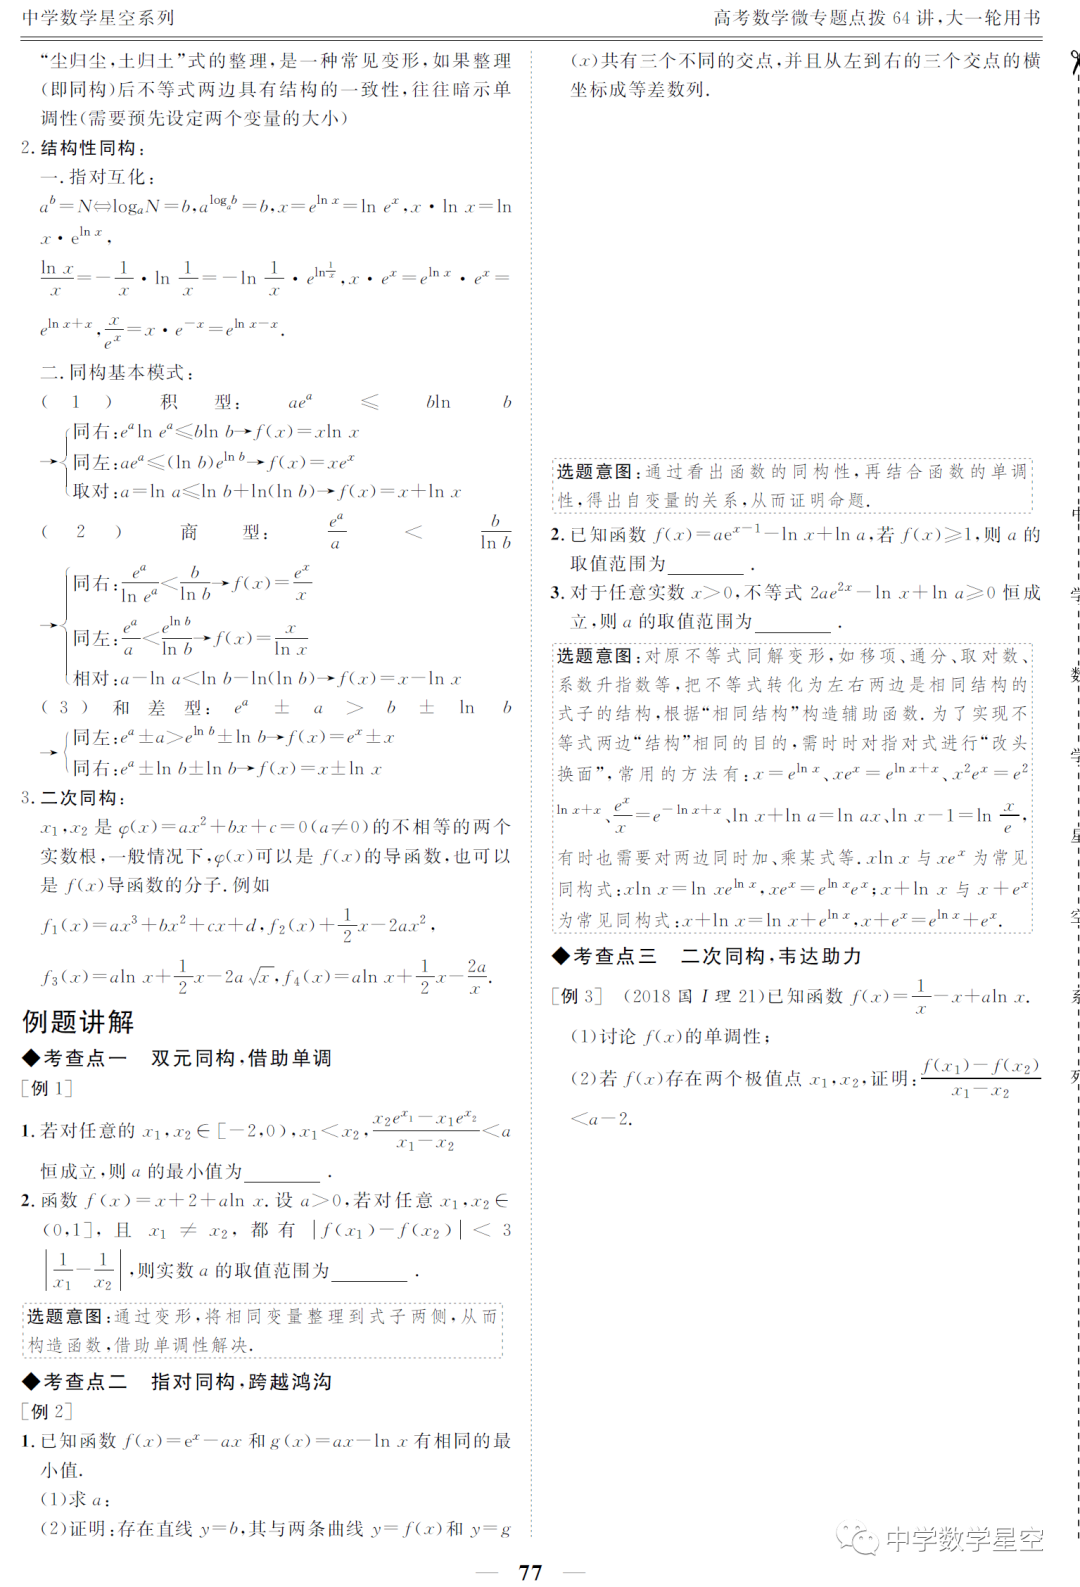 中学数学星空系列
高考数学微专题点拨64讲,大一轮用书
“尘归尘,土归土”式的整理,是一种常见变形,如果整理
(即同构)后不等式两边具有结构的一致性,往往暗示单
调性(需要预先设定两个变量的大小)
2.结构性同构:
一.指对互化:
a^b=N⇔log_a N=b,a^{log_a b}=b,x=e^{ln x}=ln e^x,x·ln x=ln
x·e^{ln x},
\frac{ln x}{x}=-\frac{1}{x}·ln \frac{1}{x}=-ln \frac{1}{x}·e^{ln\frac{1}{x}},x·e^x=e^{ln x}·e^x=
e^{ln x+x},\frac{x}{e^x}=x·e^{-x}=e^{ln x-x}.
二.同构基本模式:
(1)积型: ae^a ≤ bln b
→{同右:e^a ln e^a≤bln b→f(x)=xln x
同左:ae^a≤(ln b)e^{ln b}→f(x)=xe^x
取对:a=ln a≤ln b+ln(ln b)→f(x)=x+ln x
(2)商型: \frac{e^a}{a} < \frac{b}{ln b}
→{同右:\frac{e^a}{ln e^a}<\frac{b}{ln b}→f(x)=\frac{e^x}{x}
同左:\frac{e^a}{a}<\frac{e^{ln b}}{ln b}→f(x)=\frac{x}{ln x}
相对:a-ln a<ln b-ln(ln b)→f(x)=x-ln x
(3)和差型: e^a ± a > b ± ln b
→{同左:e^a±a>e^{ln b}±ln b→f(x)=e^x±x
同右:e^a±ln b±ln b→f(x)=x±ln x
3.二次同构:
x₁,x₂是φ(x)=ax²+bx+c=0(a≠0)的不相等的两个
实数根,一般情况下,φ(x)可以是f(x)的导函数,也可以
是f(x)导函数的分子.例如
f₁(x)=ax³+bx²+cx+d,f₂(x)+\frac{1}{2}x-2ax²,
f₃(x)=aln x+\frac{1}{2}x-2a√x,f₄(x)=aln x+\frac{1}{2}x-\frac{2a}{x}.
例题讲解
◆考查点一 双元同构,借助单调
[例1]
1.若对任意的x₁,x₂∈[-2,0),x₁<x₂,\frac{x₂e^{x₁}-x₁e^{x₂}}{x₁-x₂}<a
恒成立,则a的最小值为________.
2.函数f(x)=x+2+aln x.设a>0,若对任意x₁,x₂∈
(0,1],且x₁≠x₂,都有|f(x₁)-f(x₂)|<3
|\frac{1}{x₁}-\frac{1}{x₂}|,则实数a的取值范围为________.
选题意图:通过变形,将相同变量整理到式子两侧,从而
构造函数,借助单调性解决.
◆考查点二 指对同构,跨越鸿沟
[例2]
1.已知函数f(x)=e^x-ax和g(x)=ax-ln x有相同的最
小值.
(1)求a;
(2)证明:存在直线y=b,其与两条曲线y=f(x)和y=g
(x)共有三个不同的交点,并且从左到右的三个交点的横
坐标成等差数列.
选题意图:通过看出函数的同构性,再结合函数的单调
性,得出自变量的关系,从而证明命题.
2.已知函数f(x)=ae^{x-1}-ln x+ln a,若f(x)≥1,则a的
取值范围为________.
3.对于任意实数x>0,不等式2ae^{2x}-ln x+ln a≥0恒成
立,则a的取值范围为________.
选题意图:对原不等式同解变形,如移项、通分、取对数、
系数升指数等,把不等式转化为左右两边是相同结构的
式子的结构,根据“相同结构”构造辅助函数.为了实现不
等式两边“结构”相同的目的,需时时对指对式进行“改头
换面”,常用的方法有:x=e^{ln x}、xe^x=e^{ln x+x}、x²e^x=e²
^{ln x+x}、\frac{e^x}{x}=e^{-ln x+x}、ln x+ln a=ln ax、ln x-1=ln \frac{x}{e},
有时也需要对两边同时加、乘某式等.xln x与xe^x为常见
同构式:xln x=ln xe^{ln x},xe^x=e^{ln x}e^x;x+ln x与x+e^x
为常见同构式:x+ln x=ln x+e^{ln x},x+e^x=e^{ln x}+e^x.
◆考查点三 二次同构,韦达助力
[例3] (2018国I理21)已知函数f(x)=\frac{1}{x}-x+aln x.
(1)讨论f(x)的单调性;
(2)若f(x)存在两个极值点x₁,x₂,证明:\frac{f(x₁)-f(x₂)}{x₁-x₂}
<a-2.
中学数学星空系列
中学数学星空
— 77 —